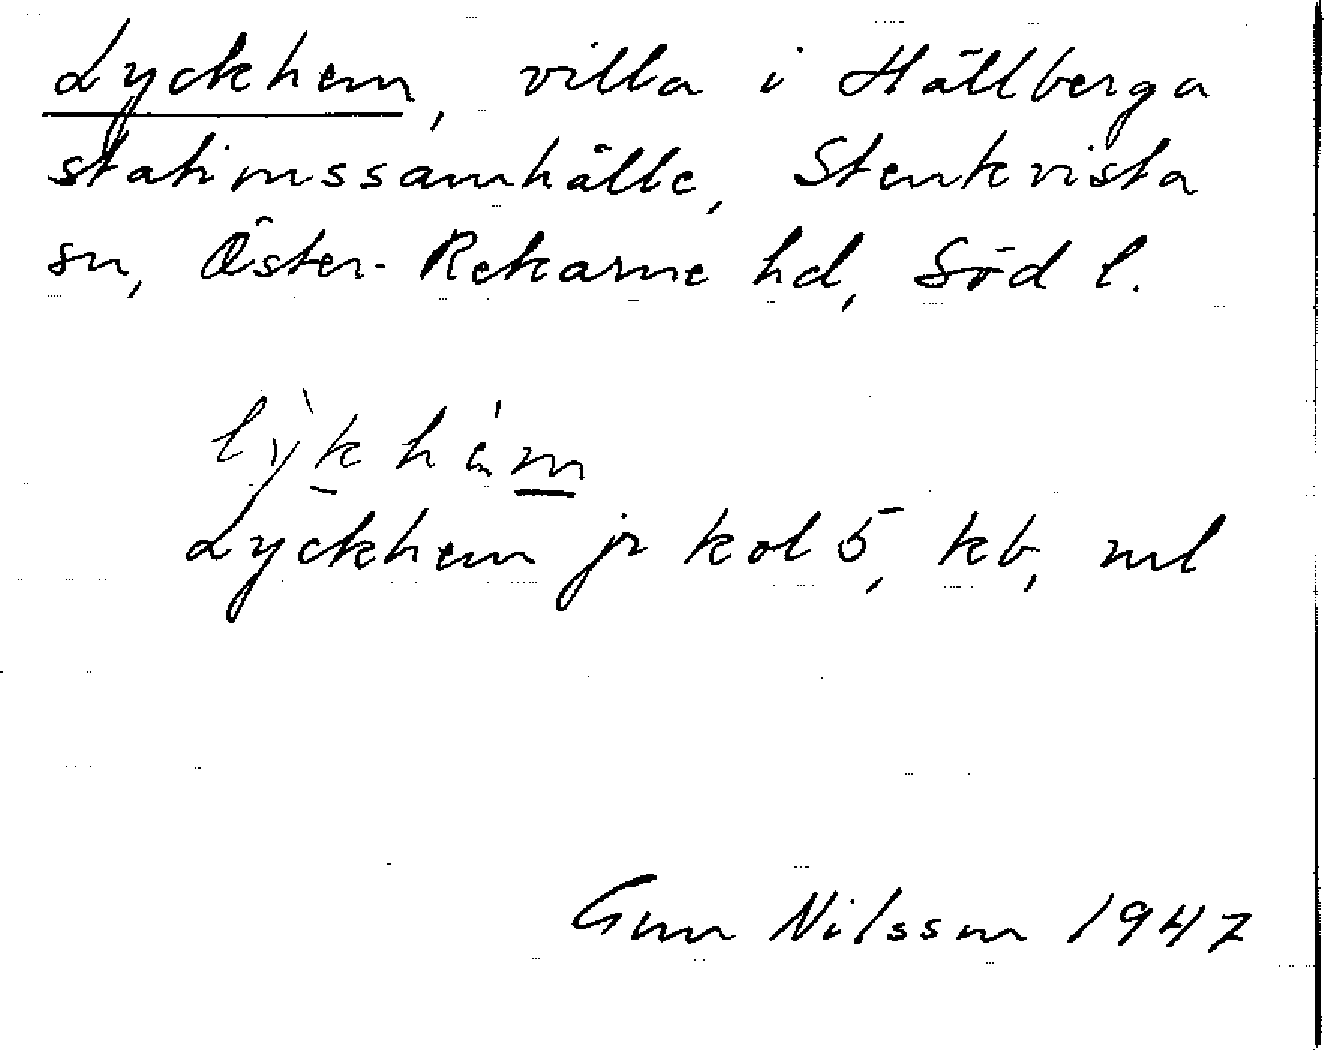 Lyckhem, villa i Hällberga
stationssamhälle, Stenkvista
sn, Öster-Rekarne hd, Söd l.
Lyckhem jr kol 5, kb, ml
Gun Nilsson 1947